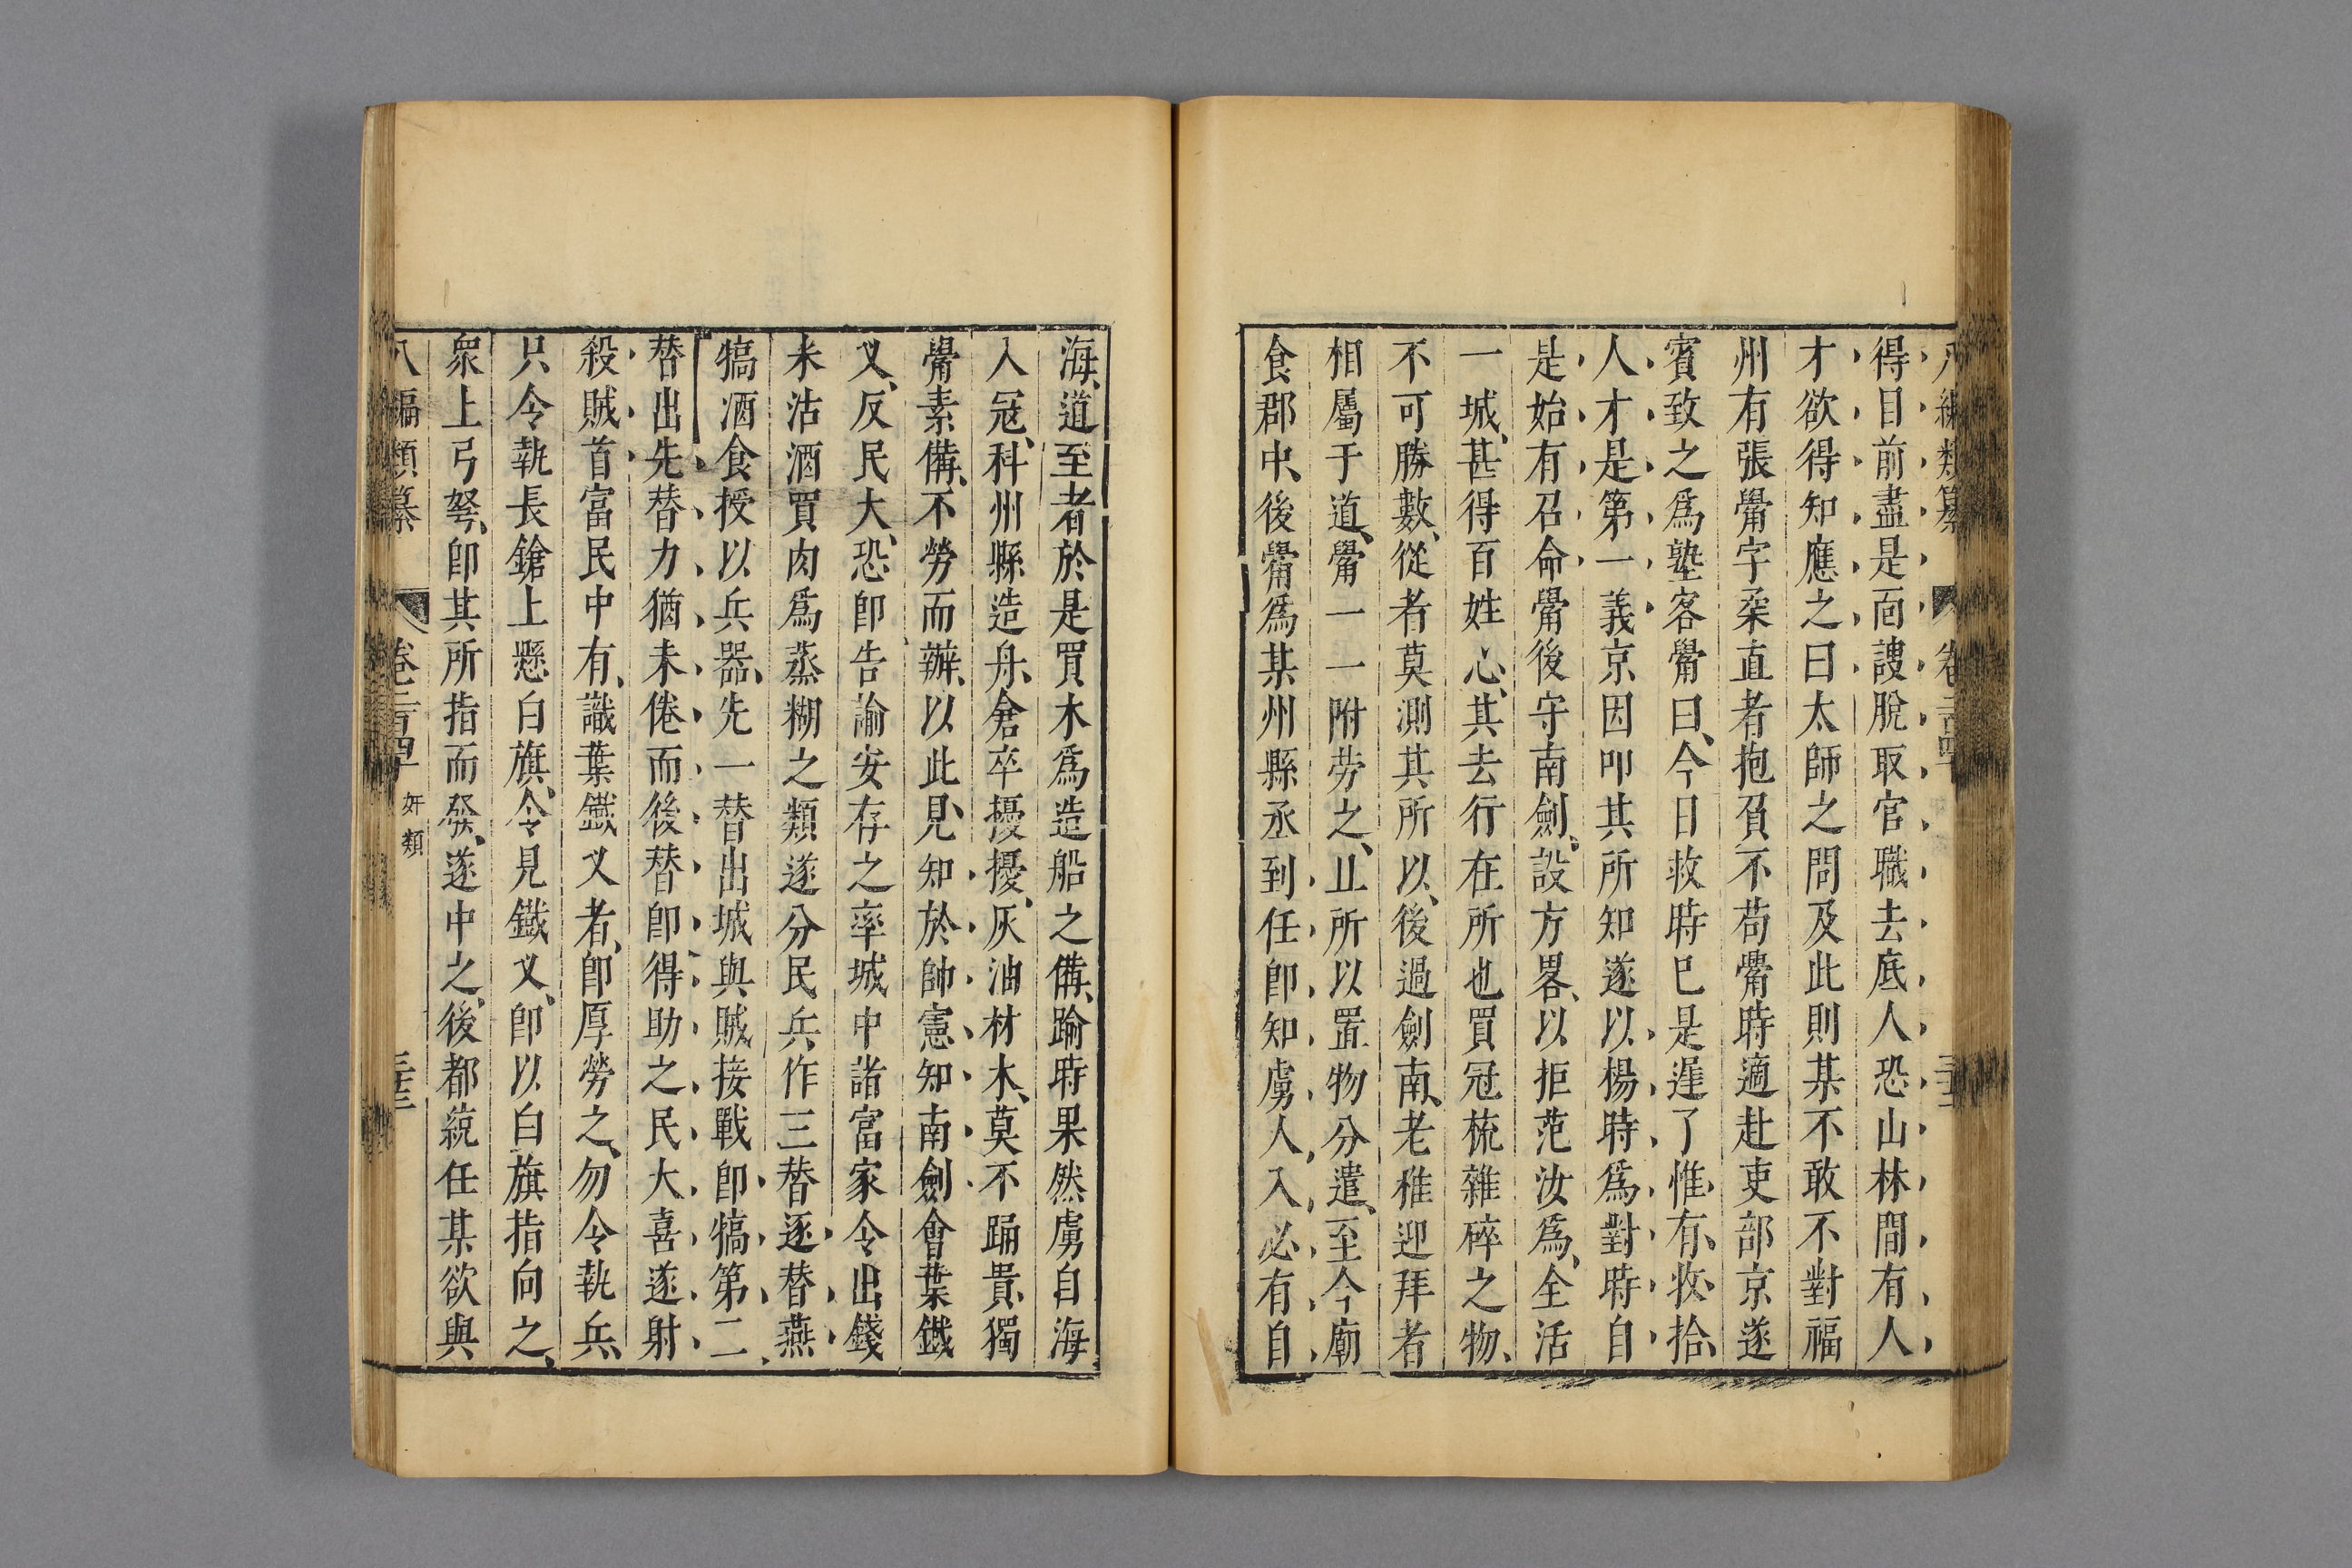 八編類纂 卷二百四十
得目前盡是面諛脫取官職去底人恐山林間有人
才欲得知應之曰太師之問及此則某不敢不對福
州有張觷字柔直者抱負不苟觷時適赴吏部京遂
賓致之爲塾客觷曰今日救時已是遲了惟有收拾
人才是第一義京因叩其所知遂以楊時爲對時自
是始有召命觷後守南劍設方畧以拒范汝爲全活
一城甚得百姓心其去行在所也買冠梳雜碎之物
不可勝數從者莫測其所以後過劍南老稚迎拜者
相屬于道觷一一附劳之且所以置物分遣至今廟
食郡中後觷爲某州縣丞到任卽知虜人入必有自
海道至者於是買木爲造船之備踰時果然虜自海
入冦科州縣造舟倉卒擾擾灰油材木莫不踊貴獨
觷素備不勞而辦以此見知於帥憲知南劍會葉鐵
又反民大恐卽告諭安存之率城中諸富家令出錢
米沽酒買肉爲蒸糊之類遂分民兵作三替逐替燕
犒酒食授以兵器先一替出城與賊接戰卽犒第二
替出先替力猶未倦而後替卽得助之民大喜遂射
殺賊首富民中有識葉鐵义者卽厚勞之勿令執兵
只令執長鎗上懸白旗令見鐵义卽以白旗指向之
衆上弓弩卽其所指而發遂中之後都統任某欲與
八編類纂 卷二百四十 奸類